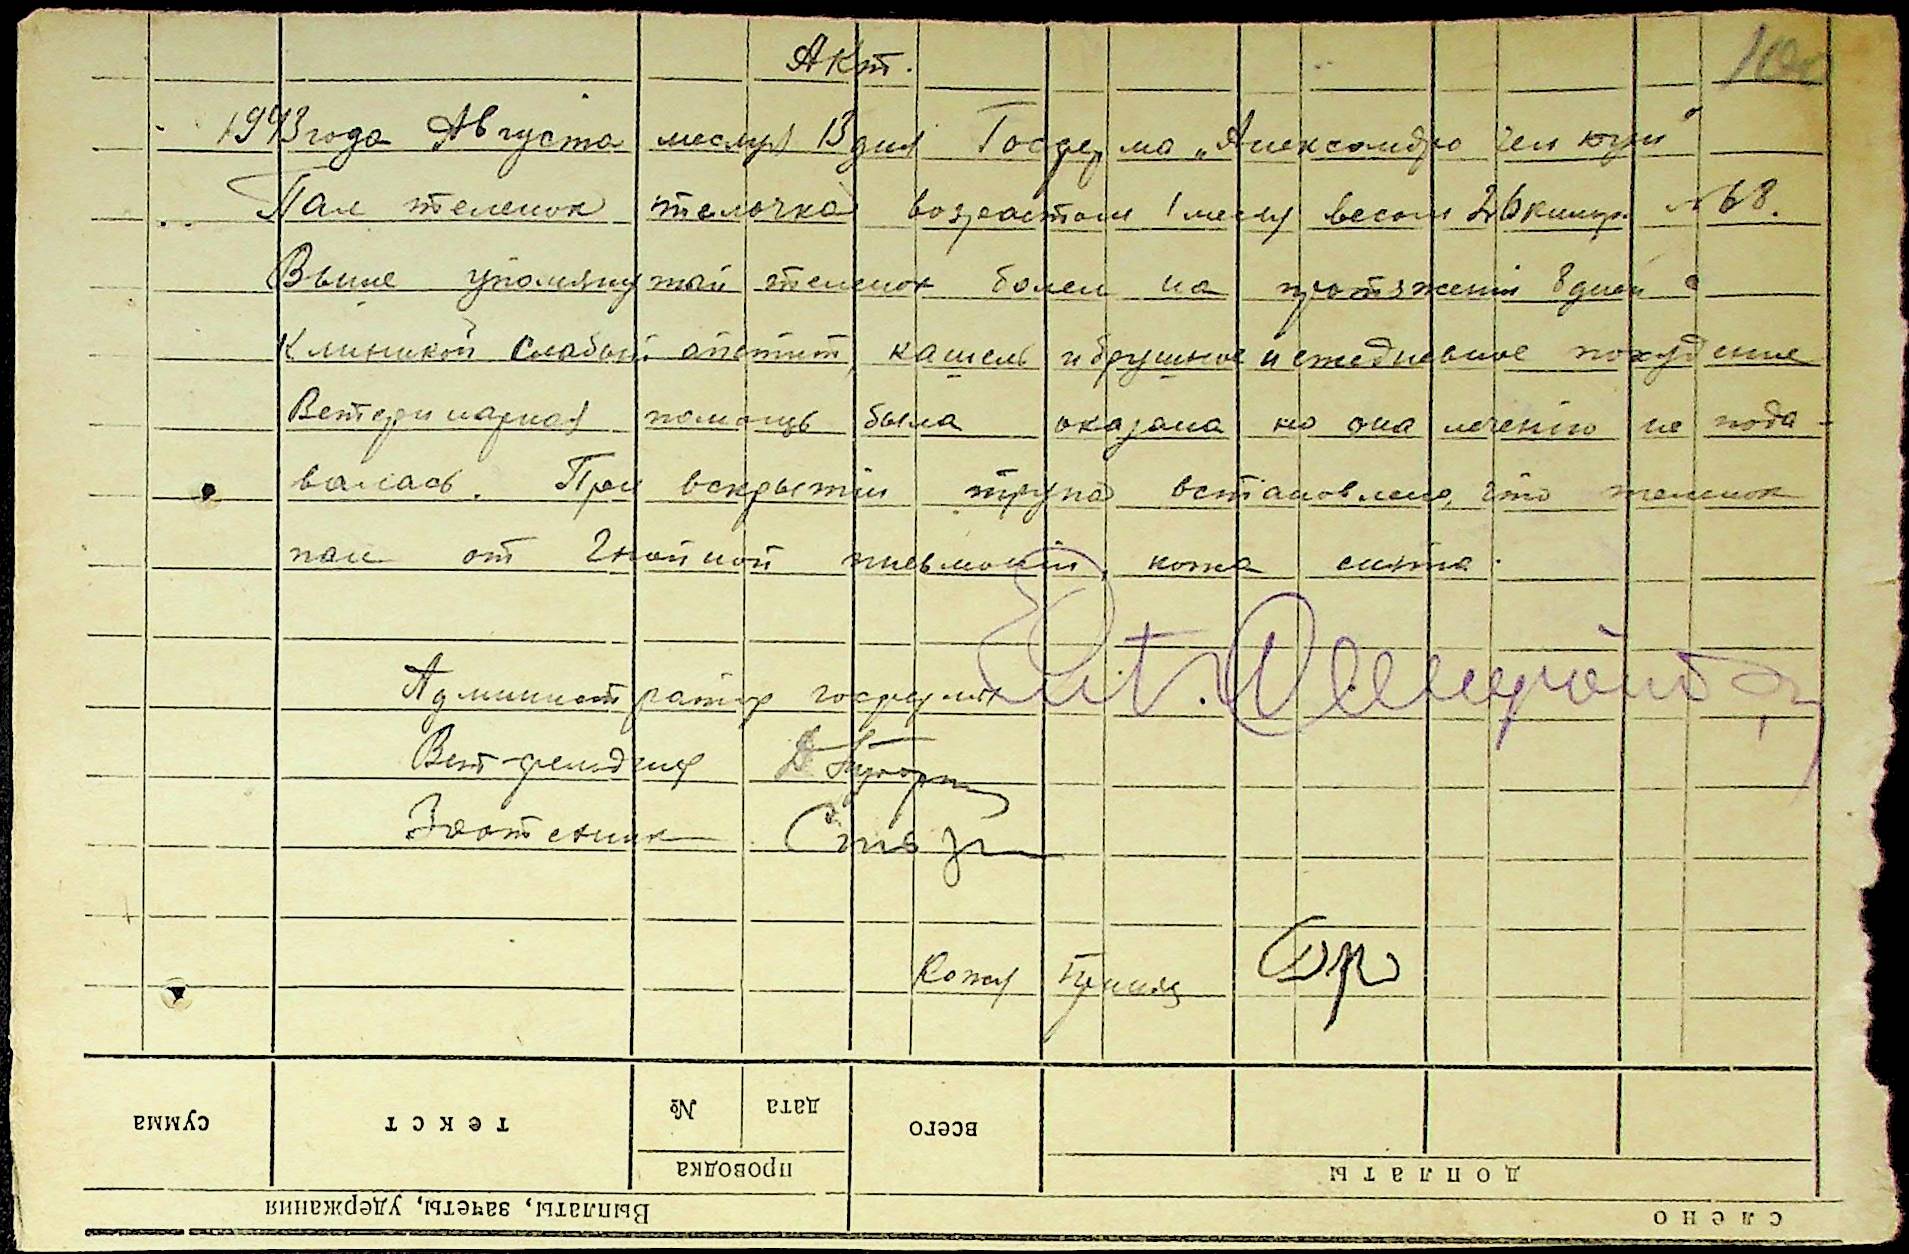 Акт.
1943 года Августа месяца 13 дня Госферма „Александро
Пал теленок телочка возрастом 1 месяц весом 26 килгр. №68.
Выше упомянутый теленок болел на протяжении 8 дней с
Клиникой слабый апетит, кашель и брушное и ежедневное похудение
Ветеринарная помощь была оказана но она лечению не пода-
валась. При вскрытии трупа встановлено, что теленок
пал от Гнойной пневмонии, кожа снята.
Администратор госфермы
Вет-фельдшер
Зоотехник
Кожу Принял
сумма
текст
№
дата
всего
проводка
доплаты
Выплаты, зачеты, удержания
слено